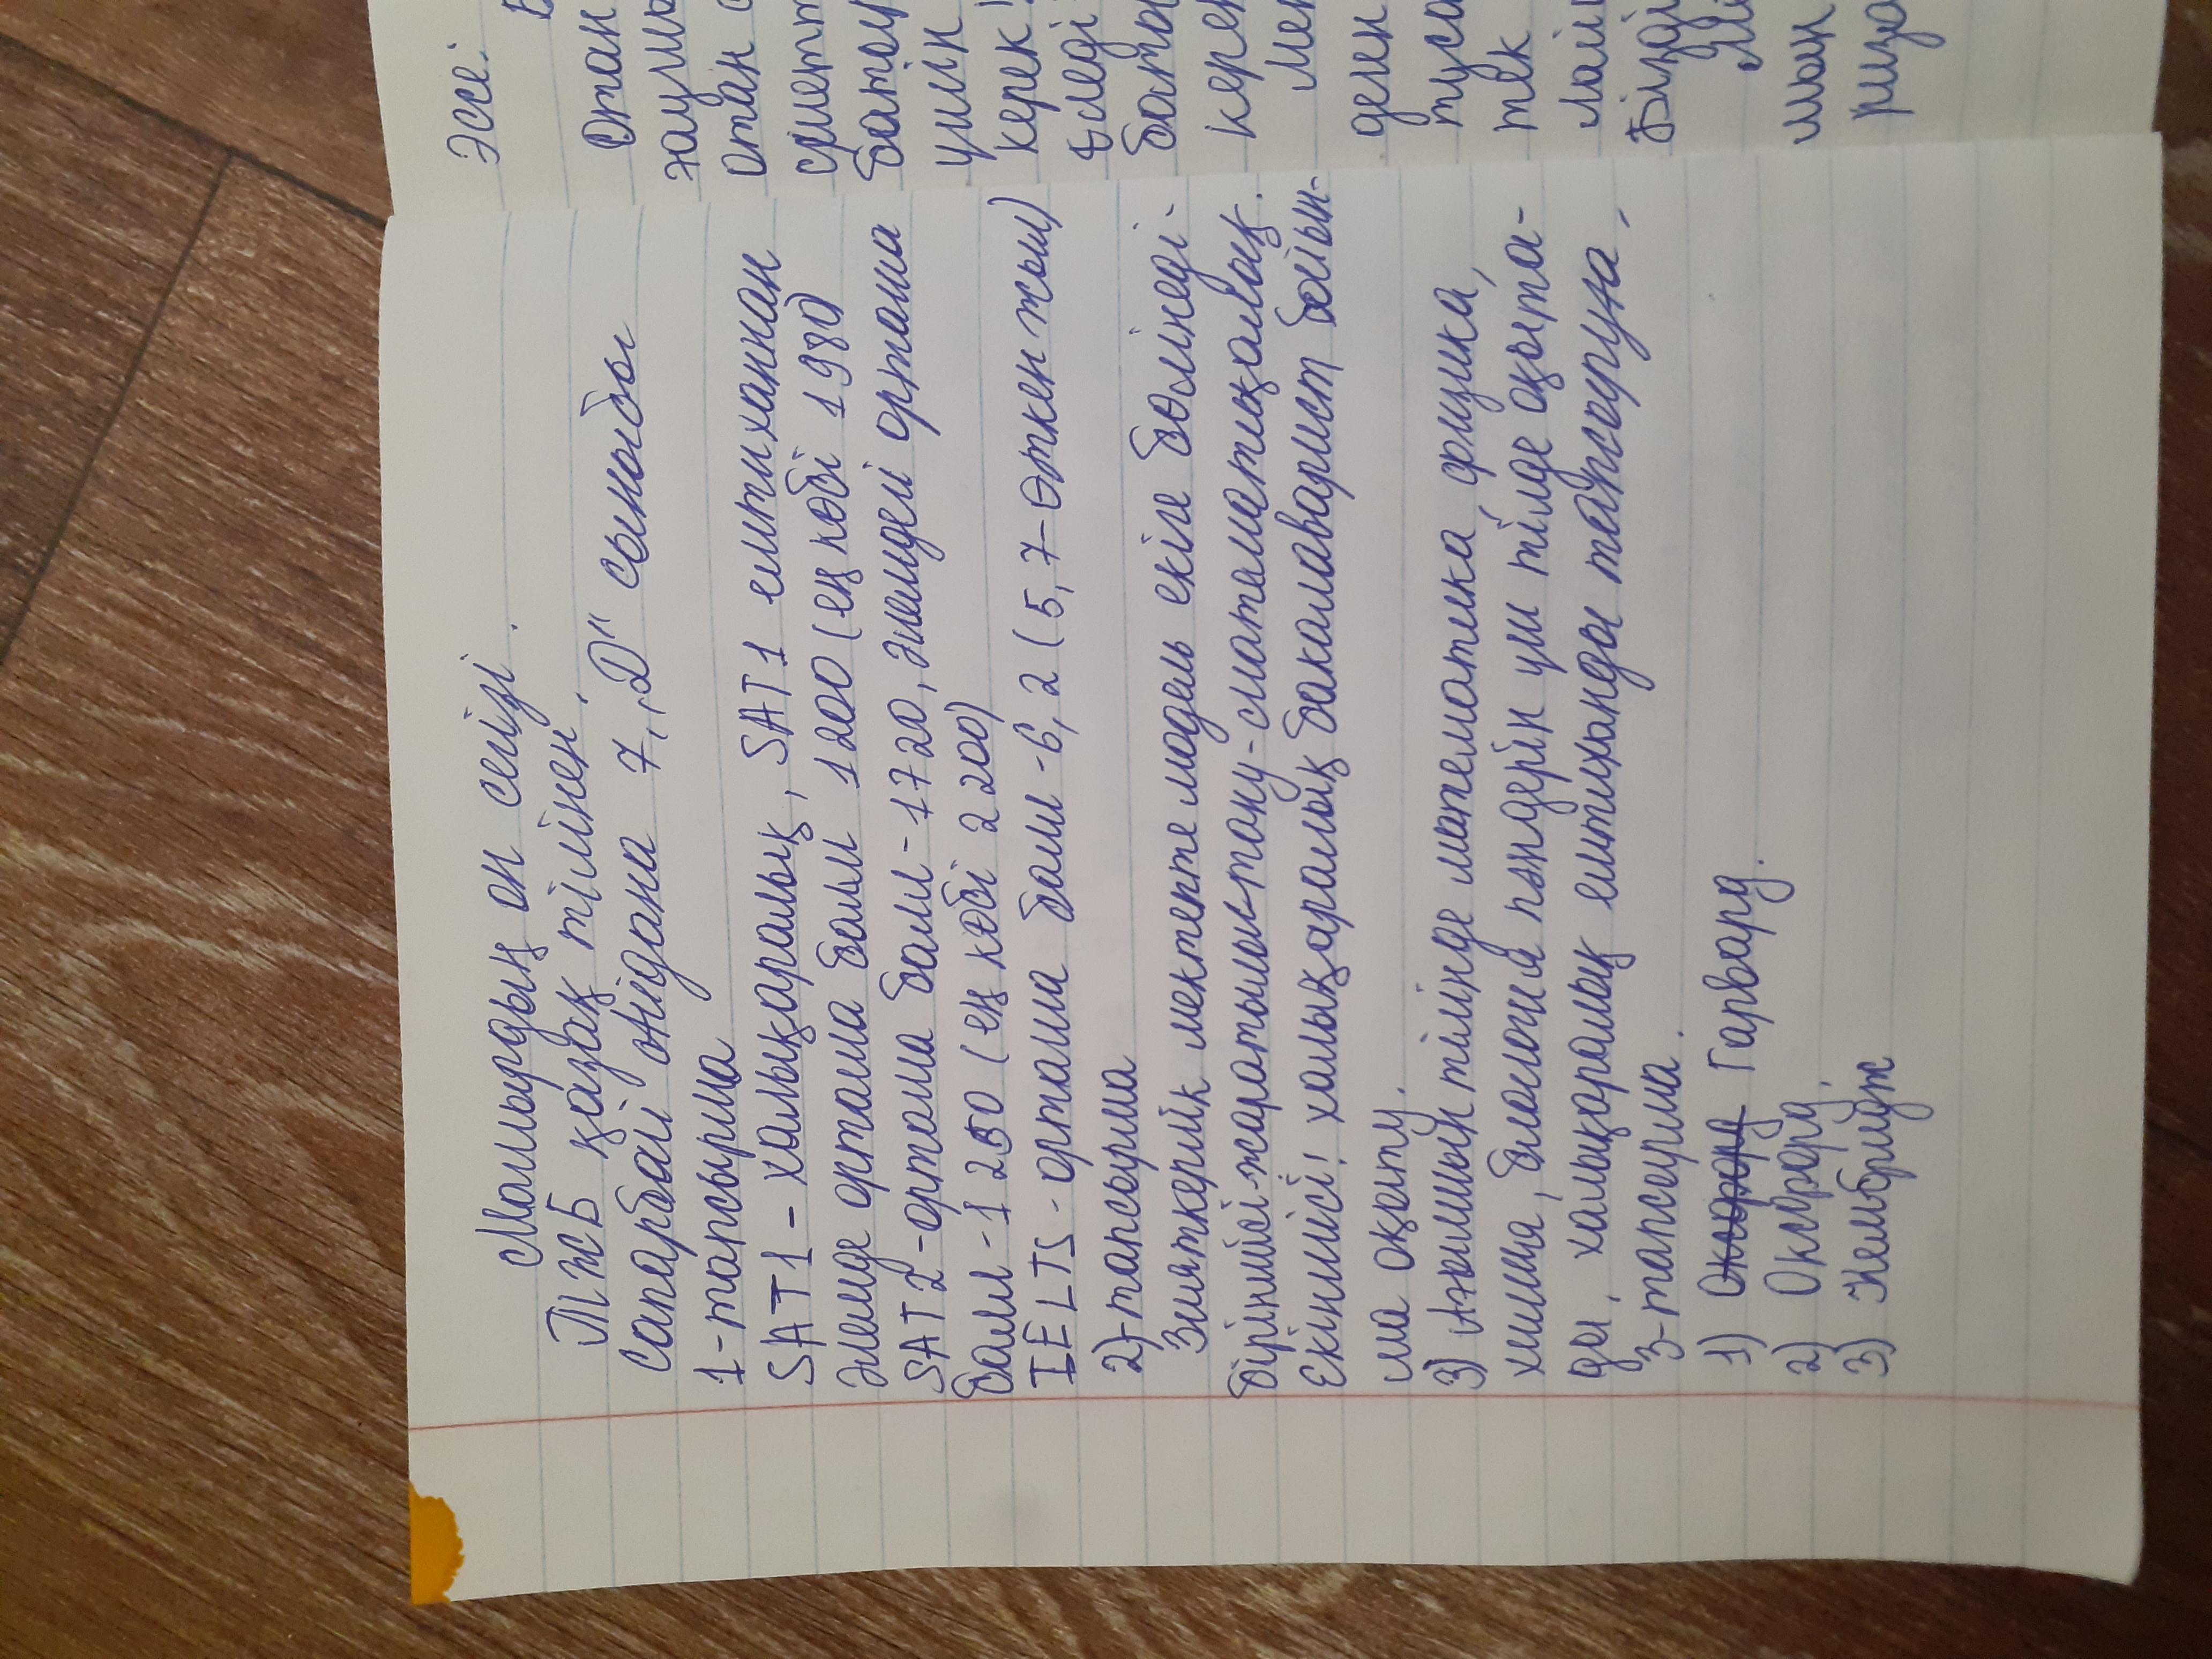 Мамырдың он сегізі.
ТЖБ қазақ тілінен.
Сапарбай Айдана 7 „Д" сыныбы
1-тапсырма
SAT1 - халықаралық, SAT1 емтиханнан
әлемде ортама балл 1200 (ең көбі 1980)
SAT2-ортама балл-1720, әлемдей орташа
балл-1250 (ең көбі 2200)
IELTS-ортама балл-6,2 (5,7-өткен жыл)
2)-тапсырма
Зияткерлік мектепте модель екіге бөлінеді.
біріншісі-жаратылыстану-математикалық.
Екіншісі: халықаралық бакалаврист бойын-
ша оқыту.
3) Ағылшын тілінде математика, физика,
химия, биология пәндерін үш тілде оқыта-
ды, халықаралық емтиханды тапсыруға,
3-тапсырма.
1) Гарвард.
2) Оксфорд,
3) Кембридж
Эссе:
Отан
керек!
Мен
деген
тек